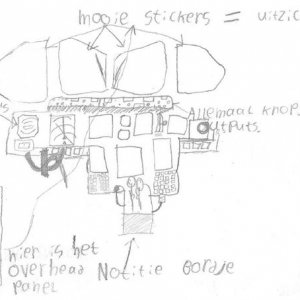 mooie stickers = uitzic
Allemaal knop.
outputs.
hier is het
overhead
panel
Notitie Bordje